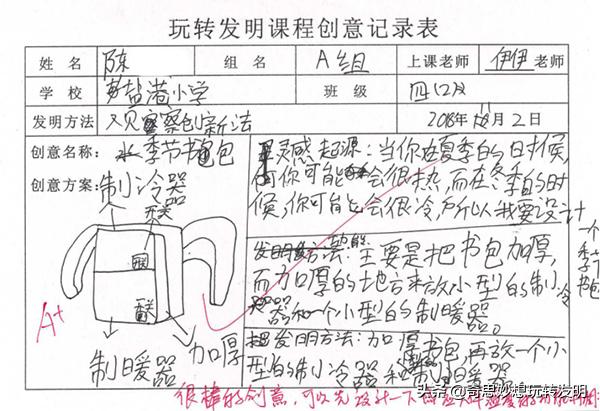 玩转发明课程创意记录表
姓名 陈 组名 A组 上课老师 伊伊老师
学校 盐港小学 班级 四(2)
发明方法 观察创新法 2018年 月2日
创意名称: 季节书包
创意方案: 制冷器
开关
开关
制暖器
加厚
A+
灵感起源:当你在夏季的时候,
你可能会很热,而在冬季的时
候,你可能会很冷,所以我要设计
一个季节书包
发明方法:主要是把书包加厚,
而加厚的地方来放小型的制冷
器和一个小型的制暖器。
把发明方法:加厚书包,再放一个小
型的制冷器和制暖器
很棒的创意,可以先设计一下
头条@奇思妙想玩转发明